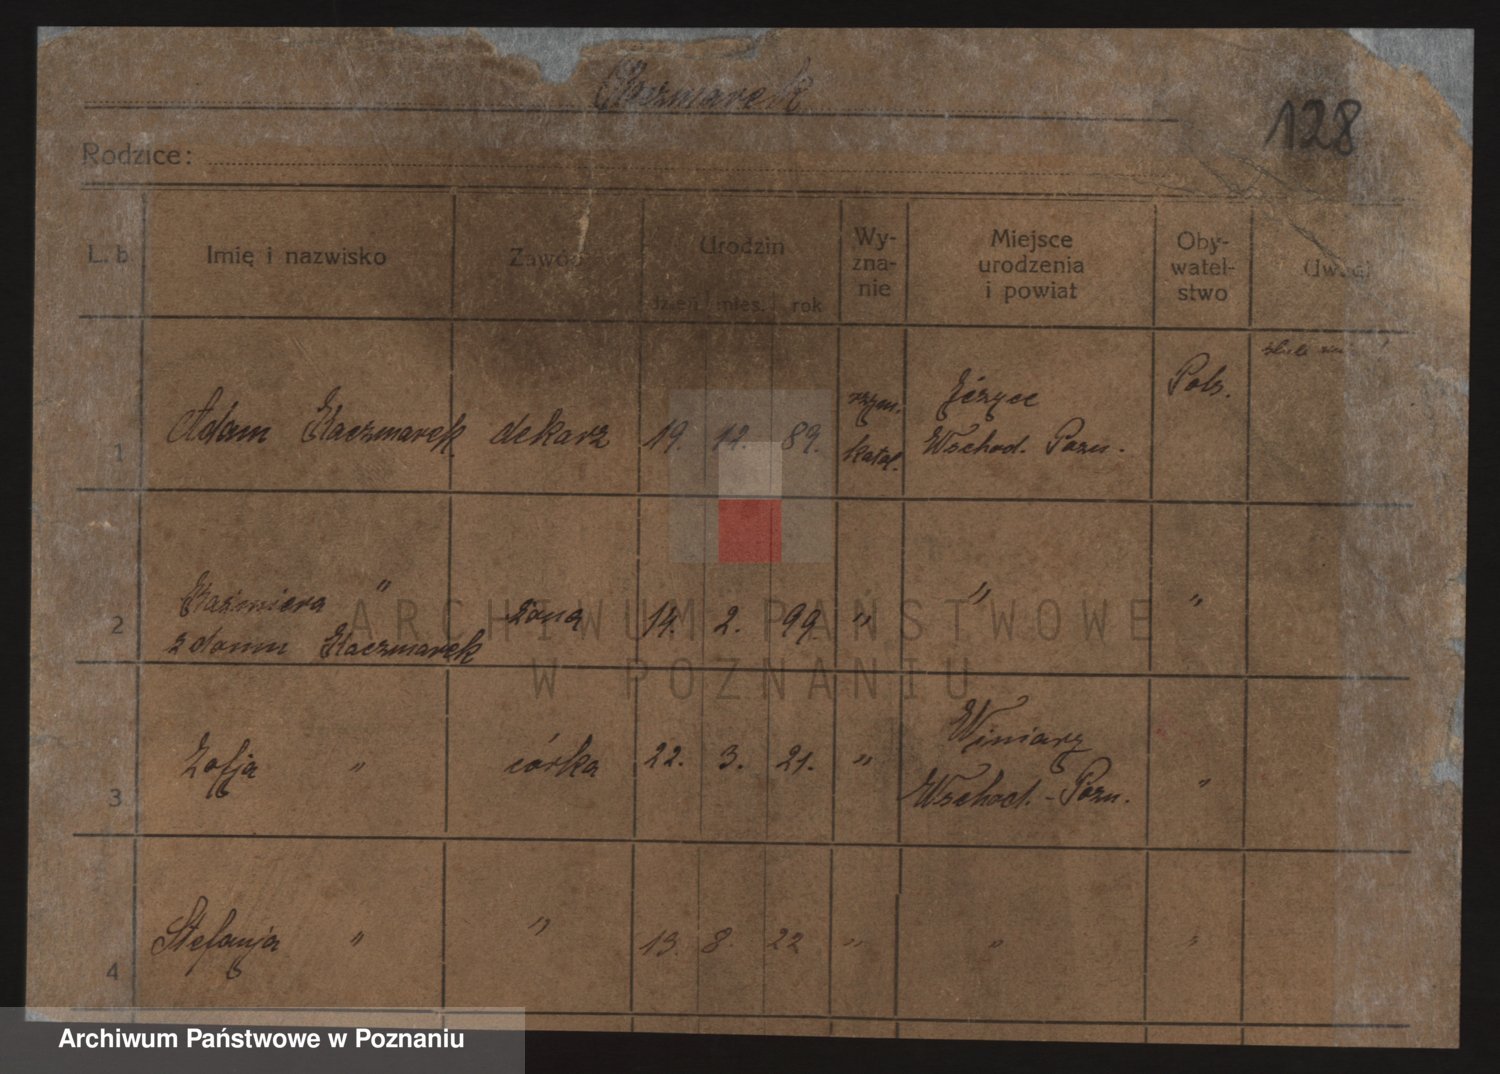 Kaczmarek
128
Rodzice:
L. b.
Imię i nazwisko
Zawód
Urodzin
dzień mies. rok
Wy-
zna-
nie
Miejsce
urodzenia
i powiat
Oby-
watel-
stwo
Uwagi
1 Adam Kaczmarek dekarz 19. 12. 89.
rzym.
katol.
Jeżyce
Wschod. Pozn.
Pols.
2 Kaźmiera " żona 14. 2. 99. " " "
z domu Kaczmarek
3 Zofja " córka 22. 3. 21. "
Winiary
Wschod. - Pozn.
"
4 Stefanja " " 13. 8. 22 " " "
ARCHIWUM PAŃSTWOWE
W POZNANIU
Archiwum Państwowe w Poznaniu